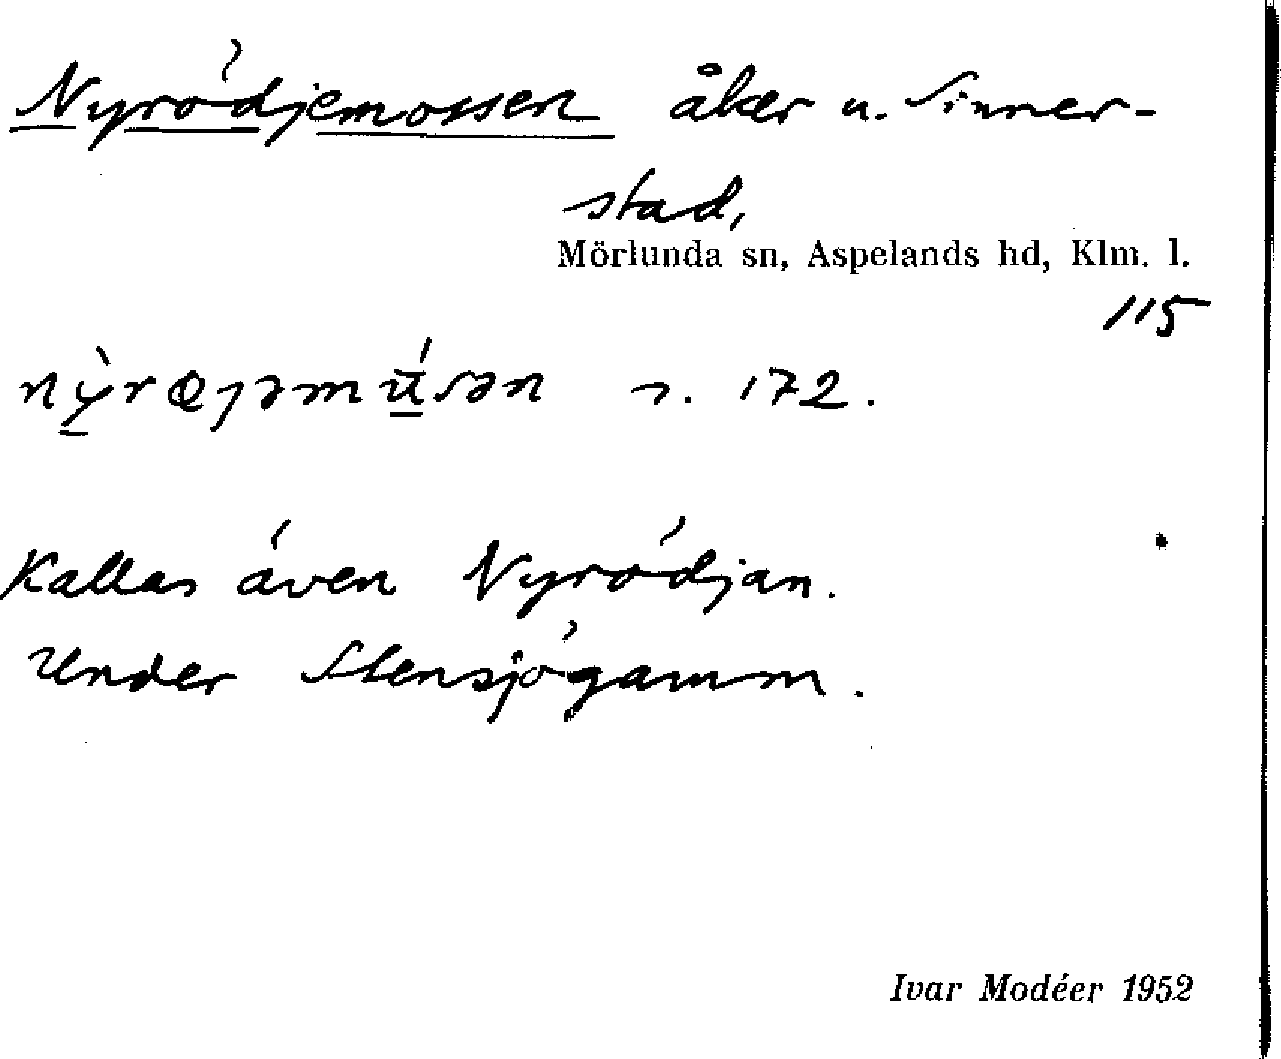 Nyrödjemossen åker u. Sinner-
stad,
Mörlunda sn, Aspelands hd, Klm. l.
115
s. 172.
Kallas även Nyrödjan.
Under Stensjögamm.
Ivar Modéer 1952